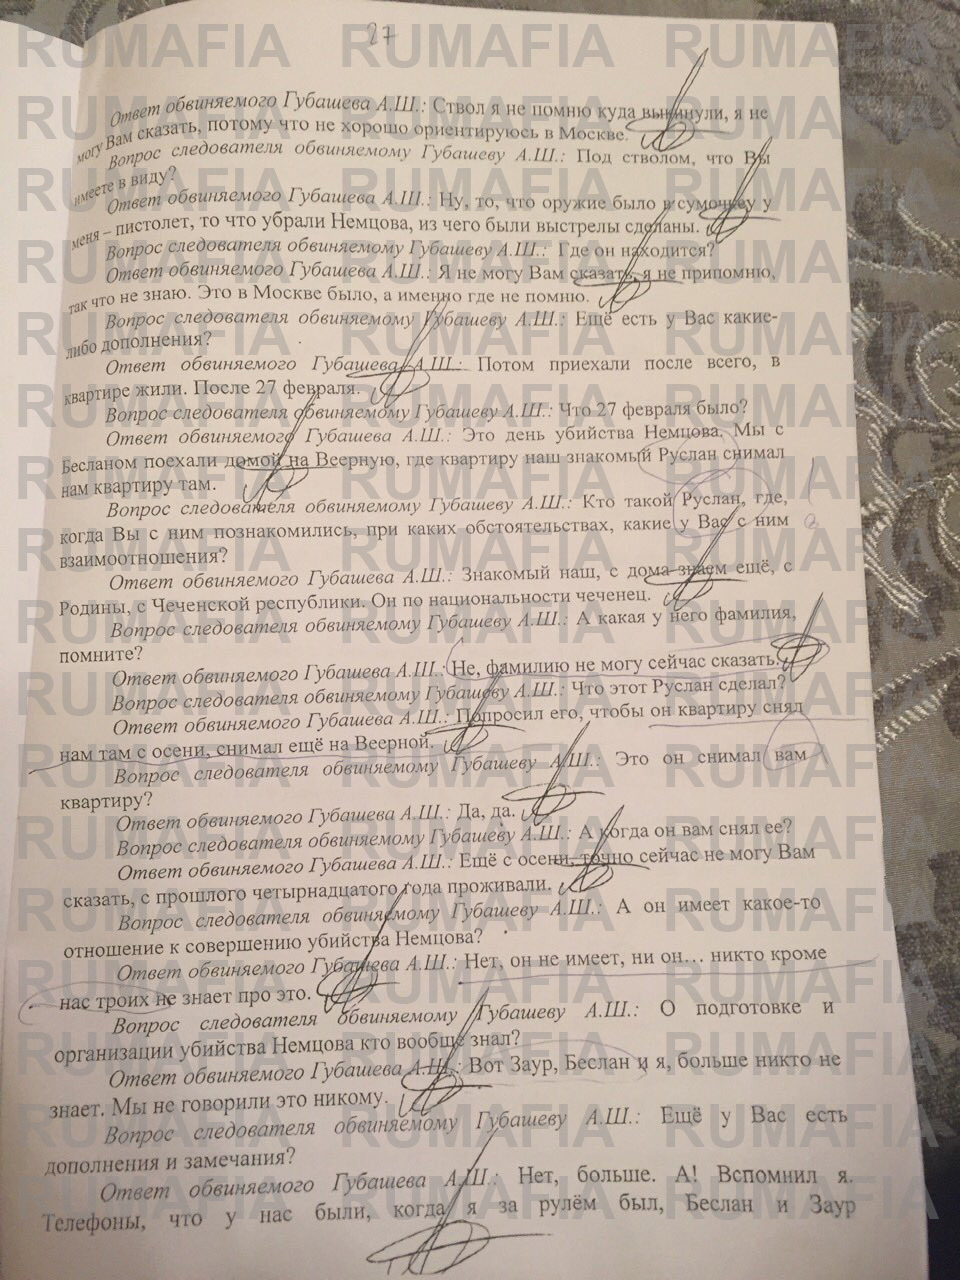 27
Ответ обвиняемого Губашева А.Ш.: Ствол я не помню куда выкинули, я не
могу Вам сказать, потому что не хорошо ориентируюсь в Москве.
Вопрос следователя обвиняемому Губашеву А.Ш.: Под стволом, что Вы
имеете в виду?
Ответ обвиняемого Губашева А.Ш.: Ну, то, что оружие было в сумочке у
меня – пистолет, то что убрали Немцова, из чего были выстрелы сделаны.
Вопрос следователя обвиняемому Губашеву А.Ш.: Где он находится?
Ответ обвиняемого Губашева А.Ш.: Я не могу Вам сказать, я не припомню,
так что не знаю. Это в Москве было, а именно где не помню.
Вопрос следователя обвиняемому Губашеву А.Ш.: Ещё есть у Вас какие-
либо дополнения?
Ответ обвиняемого Губашева А.Ш.: Потом приехали после всего, в
квартире жили. После 27 февраля.
Вопрос следователя обвиняемому Губашеву А.Ш.: Что 27 февраля было?
Ответ обвиняемого Губашева А.Ш.: Это день убийства Немцова. Мы с
Бесланом поехали домой на Веерную, где квартиру наш знакомый Руслан снимал
нам квартиру там.
Вопрос следователя обвиняемому Губашеву А.Ш.: Кто такой Руслан, где,
когда Вы с ним познакомились, при каких обстоятельствах, какие у Вас с ним
взаимоотношения?
Ответ обвиняемого Губашева А.Ш.: Знакомый наш, с дома знаем ещё, с
Родины, с Чеченской республики. Он по национальности чеченец.
Вопрос следователя обвиняемому Губашеву А.Ш.: А какая у него фамилия,
помните?
Ответ обвиняемого Губашева А.Ш.: Не, фамилию не могу сейчас сказать.
Вопрос следователя обвиняемому Губашеву А.Ш.: Что этот Руслан сделал?
Ответ обвиняемого Губашева А.Ш.: Попросил его, чтобы он квартиру снял
нам там с осени, снимал ещё на Веерной.
Вопрос следователя обвиняемому Губашеву А.Ш.: Это он снимал вам
квартиру?
Ответ обвиняемого Губашева А.Ш.: Да, да.
Вопрос следователя обвиняемому Губашеву А.Ш.: А когда он вам снял ее?
Ответ обвиняемого Губашева А.Ш.: Ещё с осени, точно сейчас не могу Вам
сказать, с прошлого четырнадцатого года проживали.
Вопрос следователя обвиняемому Губашеву А.Ш.: А он имеет какое-то
отношение к совершению убийства Немцова?
Ответ обвиняемого Губашева А.Ш.: Нет, он не имеет, ни он… никто кроме
нас троих не знает про это.
Вопрос следователя обвиняемому Губашеву А.Ш.: О подготовке и
организации убийства Немцова кто вообще знал?
Ответ обвиняемого Губашева А.Ш.: Вот Заур, Беслан и я, больше никто не
знает. Мы не говорили это никому.
Вопрос следователя обвиняемому Губашеву А.Ш.: Ещё у Вас есть
дополнения и замечания?
Ответ обвиняемого Губашева А.Ш.: Нет, больше. А! Вспомнил я.
Телефоны, что у нас были, когда я за рулём был, Беслан и Заур
RUMAFIA